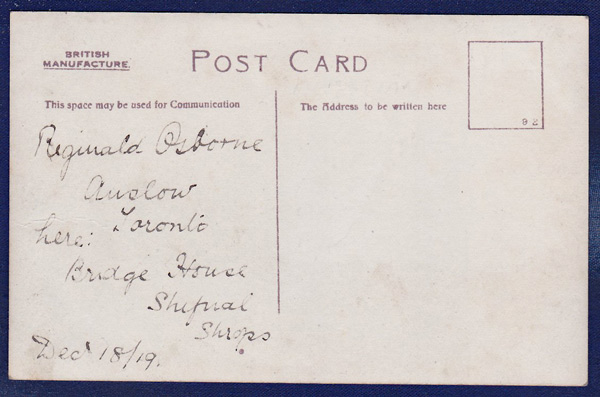 BRITISH
MANUFACTURE.
POST CARD
92
This space may be used for Communication
The Address to be written here
Reginald Osborne
Anslow
Toronto
here:
Bridge House
Shifnal
Shrops
Dec 18/19.